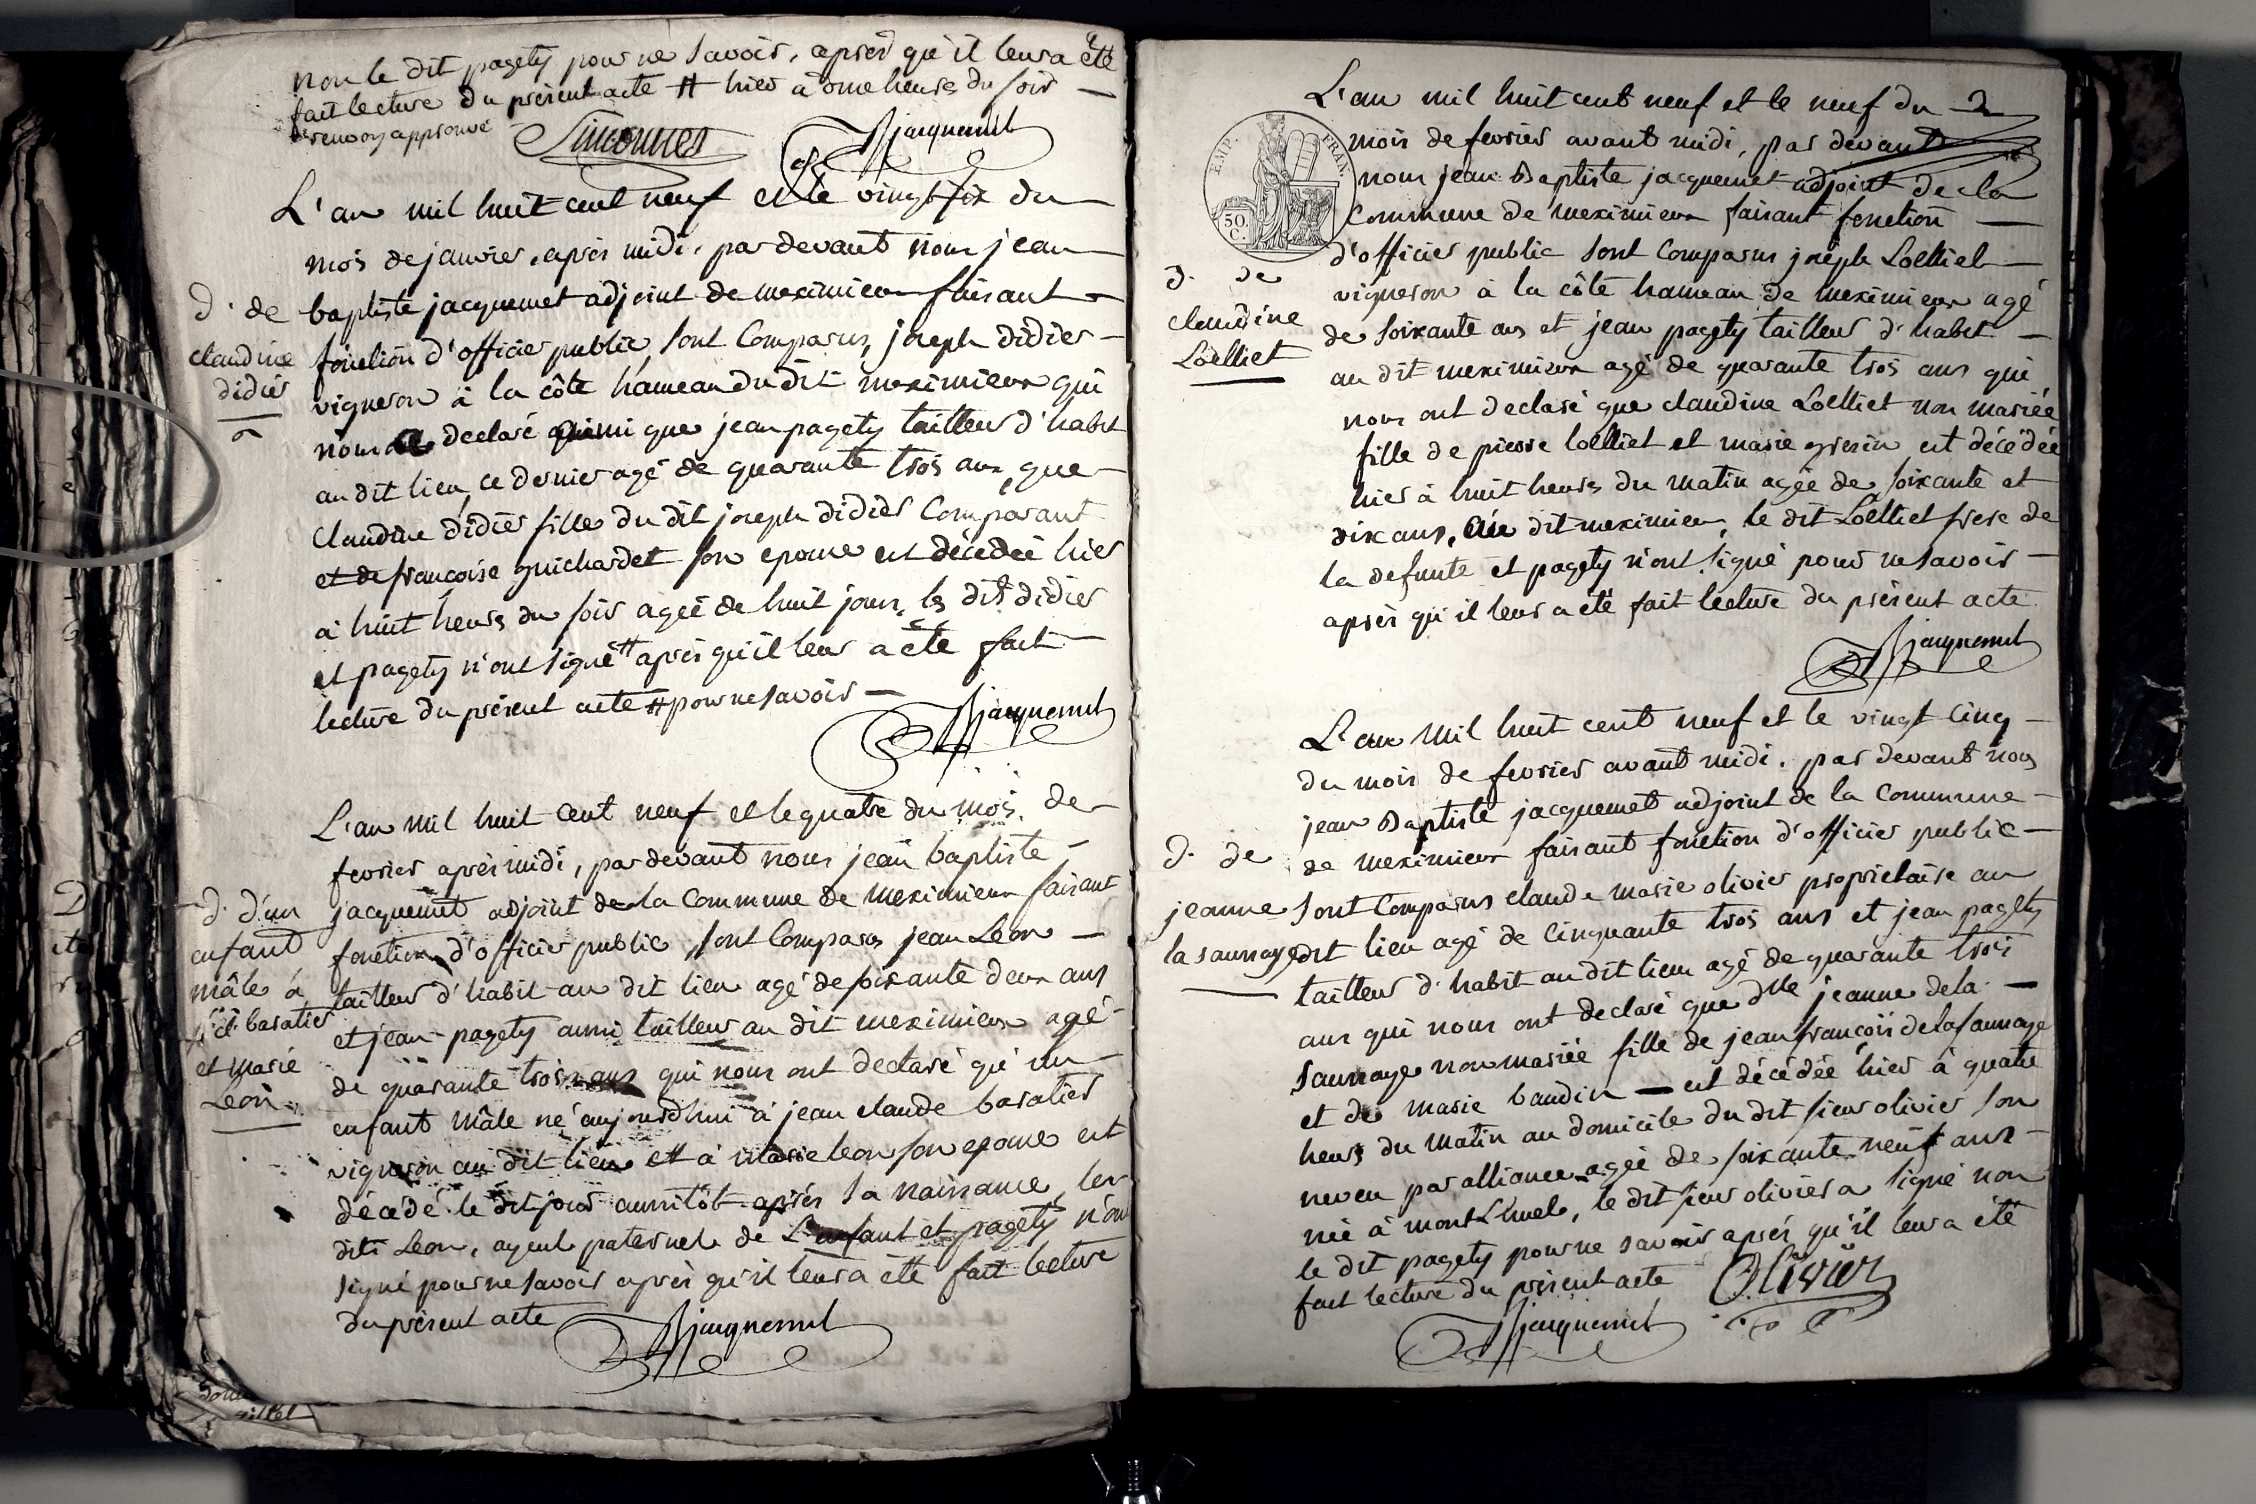 non le dit pagety pour ne savoir, après qu'il leur a été
fait lecture du présent acte # hier à onze heures du soir
renvoy approuvé
Simonnet
JBjacquemet
L'an mil huit cent neuf et le vingt six du
mois de janvier, après midi, par devant nous jean
baptiste jacquemet adjoint de meximieux faisant
fonction d'officier public, sont comparus, joseph didier
vigneron à la côte hameau du dit meximieux qui
nous a declaré ainsi que jean pagety tailleur d'habit
au dit lieu, ce dernier agé de quarante trois ans, que
claudine didier fille du dit joseph didier comparant
et de françoise guichardet son epouse est décédée hier
à huit heures du soir agée de huit jours, les dits didier
et pagety n'ont signé # après qu'il leur a été fait
lecture du présent acte # pour ne savoir
JBjacquemet
d. de
claudine
didier
L'an mil huit cent neuf et le quatre du mois de
fevrier après midi, par devant nous jean baptiste
jacquemet adjoint de la commune de meximieux faisant
fonction d'officier public, sont comparus jean Leon
tailleur d'habit au dit lieu agé de soixante deux ans
et jean pagety aussi tailleur au dit meximieux agé
de quarante trois ans qui nous ont declaré qu'un
enfant mâle né aujourdhui à jean claude baratier
vigneron au dit lieu et à marie leon son epouse est
décédé le dit jour aussitôt après sa naissance, les
dits Leon, ayeul paternel de L'enfant et pagety n'ont
signé pour ne savoir après qu'il leur a été fait lecture
du présent acte
JBjacquemet
d. d'un
enfant
mâle à
j. c. baratier
et marie
Leon
EMP. FRAN.
50
C.
L'an mil huit cent neuf et le neuf du
mois de fevrier avant midi, par devant
nous jean Baptiste jacquemet adjoint de la
commune de meximieux faisant fonction
d'officier public sont comparus joseph Loëlliet
vigneron à la côte hameau de meximieux agé
de soixante ans et jean pagety tailleur d'habit
au dit meximieux agé de quarante trois ans qui
nous ont declaré que claudine Loëlliet non mariée
fille de pierre loëlliet et marie est décédée
hier à huit heures du matin agée de soixante et
dix ans, au dit meximieux, le dit Loëlliet frere de
la defunte et pagety n'ont signé pour ne savoir
après qu'il leur a été fait lecture du présent acte
JBjacquemet
d. de
claudine
Loëlliet
L'an mil huit cent neuf et le vingt cinq
du mois de fevrier avant midi, par devant nous
jean Baptiste jacquemet adjoint de la commune
de meximieux faisant fonction d'officier public
sont comparus claude marie olivier proprietaire au
dit lieu agé de cinquante trois ans et jean pagety
tailleur d'habit au dit lieu agé de quarante trois
ans qui nous ont declaré que dlle jeanne dela
saunaye non mariée fille de jean françois delasaunaye
et de marie baudin est décédée hier à quatre
heures du matin au domicile du dit sieur olivier son
neveu par alliance agée de soixante neuf ans
née à mont Luel, le dit sieur olivier a signé non
le dit pagety pour ne savoir après qu'il leur a été
fait lecture du présent acte
Olivier
JBjacquemet
d. de
jeanne
la saunaye